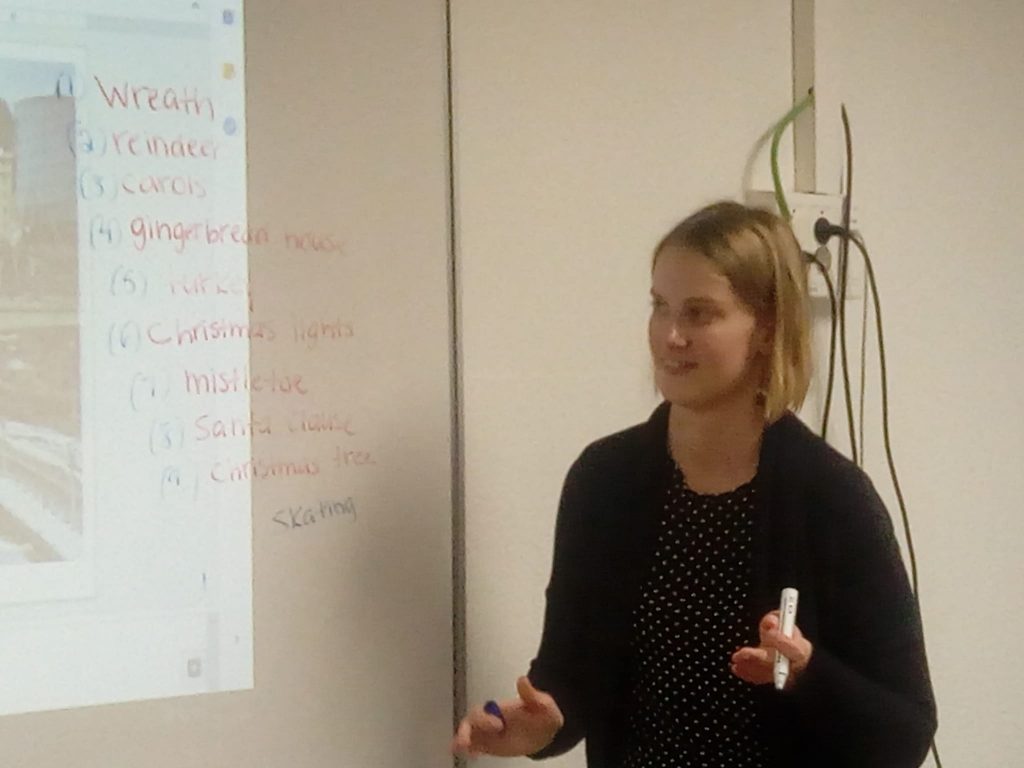 (1) Wreath
(2) reindeer
(3) carols
(4) gingerbread house
(5) Turkey
(6) Christmas lights
(7) mistletoe
(8) Santa Clause
(9) Christmas tree
skating